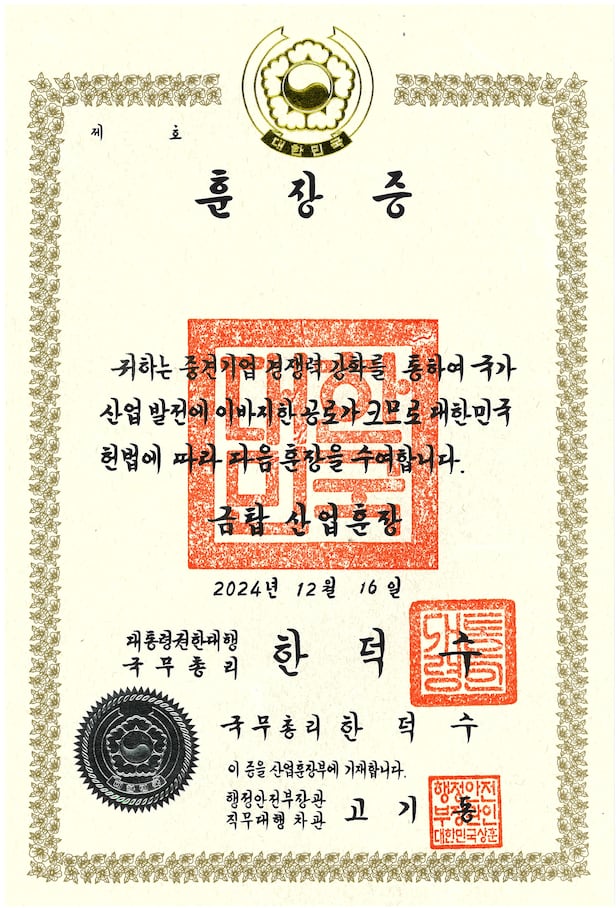 대한민국
제 호
훈장증
귀하는 중견기업 경쟁력 강화를 통하여 국가
산업 발전에 이바지한 공로가 크므로 대한민국
헌법에 따라 다음 훈장을 수여합니다.
금탑 산업훈장
2024년 12월 16일
대통령권한대행
국무총리 한덕수
국무총리 한덕수
이 증을 산업훈장부에 기재합니다.
행정안전부장관
직무대행 차관 고기동
행정안전
부장관인
대한민국상훈